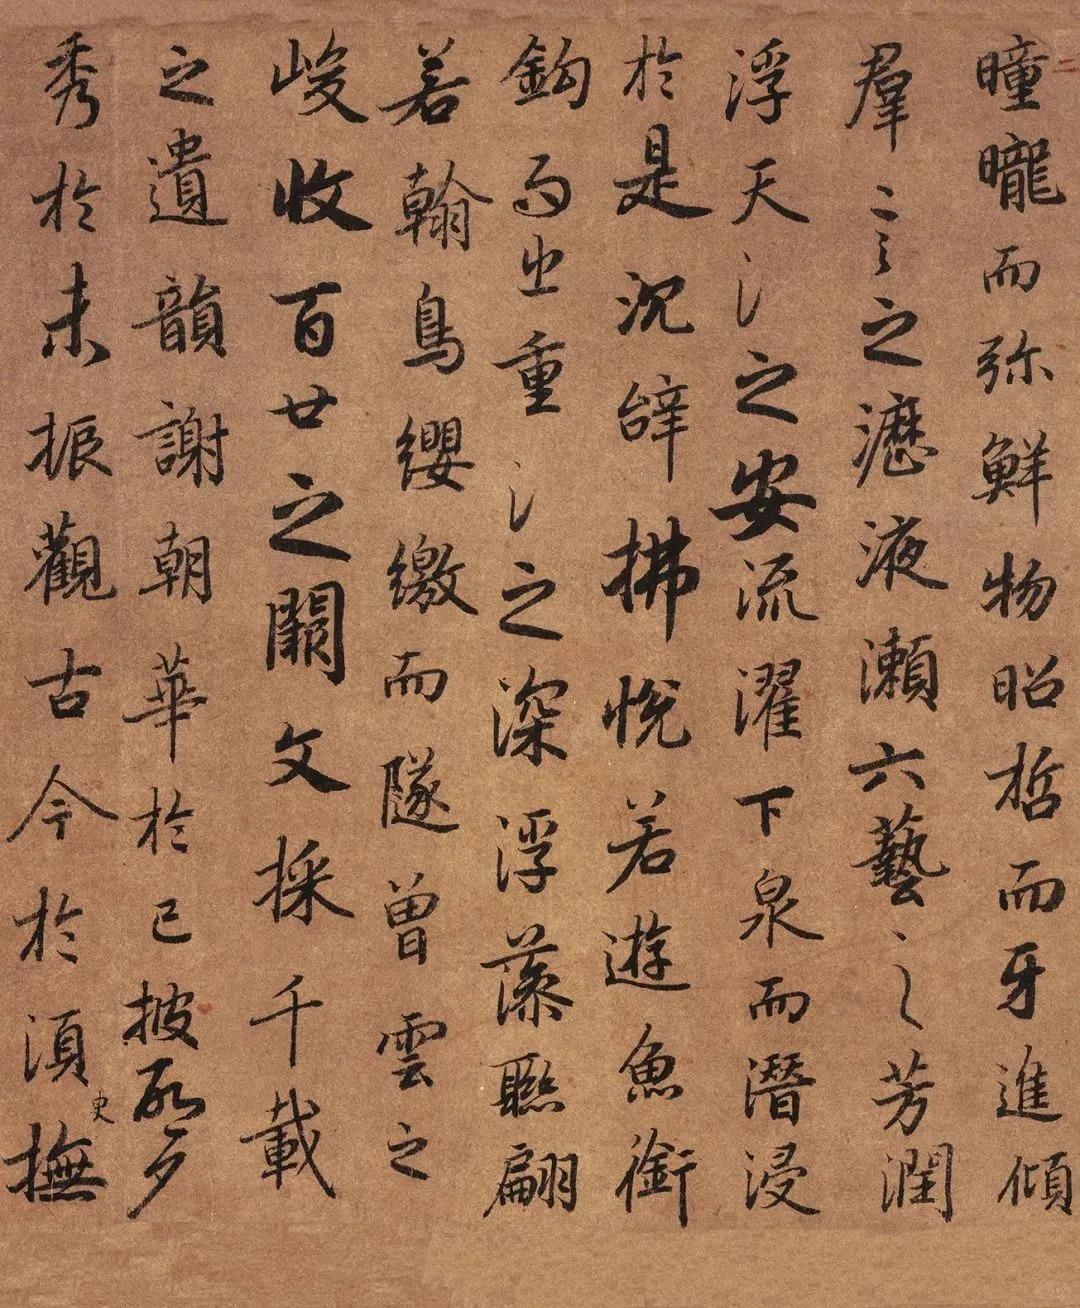 曈曨而弥鮮物昭晢而牙進傾
羣言之瀝液瀨六藝之芳潤
浮天之安流濯下泉而潛浸
於是沉辝拂悅若遊魚銜
鈎而出重之深浮藻聮翩
若翰鳥纓繳而隧曾雲之
峻收百廿之闕文採千載
之遺韻謝朝華於已披啓夕
秀於未振觀古今於須臾撫